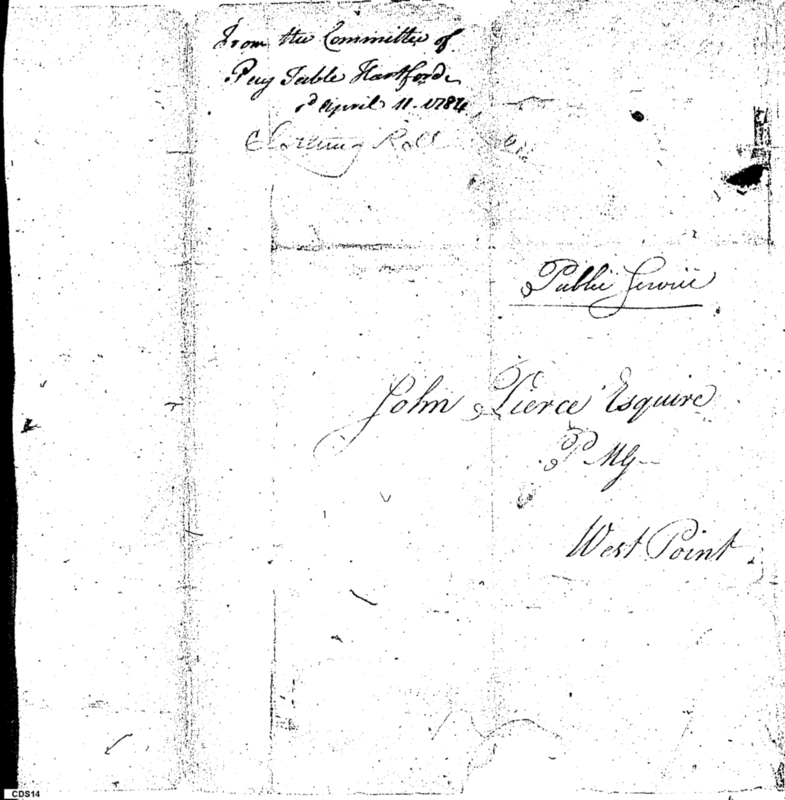 From the Committee of
Pay Table Hartford
d April 11. 1784
Clothing Roll
Public Service
John Pierce Esquire
P MG
West Point
CDS14